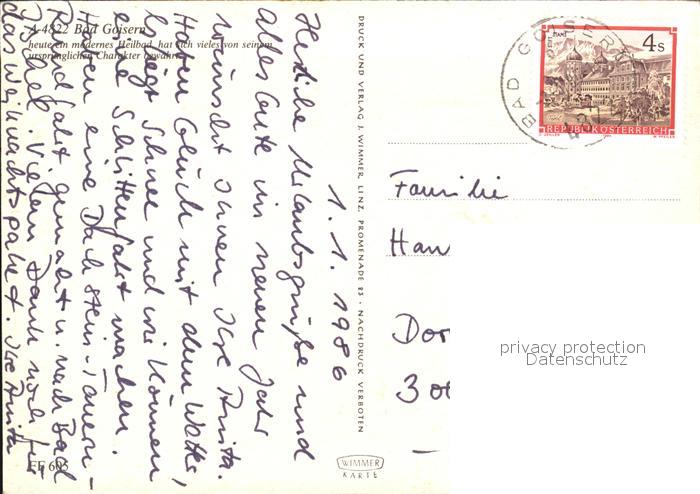 A-4822 Bad Goisern
heute ein modernes Heilbad, hat sich vieles von seinem
ursprünglichen Charakter bewahrt.
1. 1. 1986
Herzliche Urlaubsgrüße und
alles Gute im neuen Jahr
wünscht Ihnen Ihre Anita.
Haben Glück mit dem Wetter,
liegt Schnee und wir können
eine Schlittenfahrt machen.
Haben eine Dachstein-Tauern-
Rundfahrt gemacht u. nach Bad
Ischl. Vielen Dank noch für
das Weihnachtspaket. Ihre Anita
EF 605
DRUCK UND VERLAG J. WIMMER, LINZ, PROMENADE 23 · NACHDRUCK VERBOTEN
WIMMER
KARTE
BAD GOISERN
4 S
REPUBLIK ÖSTERREICH
Familie
Han
Dor
300
privacy protection
Datenschutz